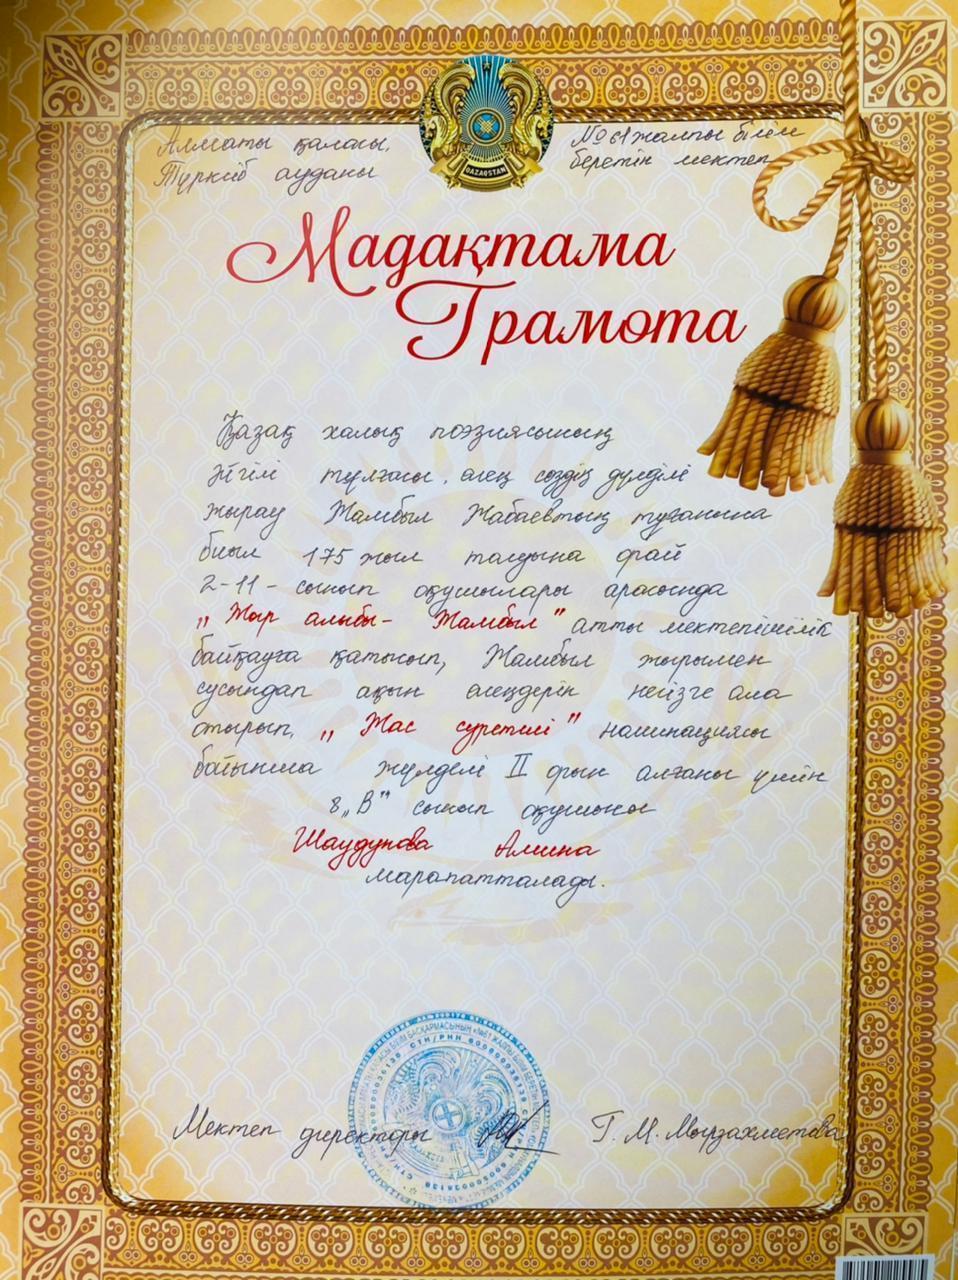 Алматы қаласы,
Түрксіб ауданы
№ 61 жалпы білім
беретін мектеп
QAZAQSTAN
Мадақтама
Грамота
Қазақ халық поэзиясының
әйгілі тұлғасы, өлең сөздің дүлділі
жырау Жамбыл Жабаевтың туғанына
биыл 175 жыл толуына орай
2-11 - сынып оқушылары арасында
„Жыр алыбы - Жамбыл" атты мектепішілік
байқауға қатысып, Жамбыл жырымен
сусындап ақын өлеңдерін негізге ала
отырып, „Жас суретші" номинациясы
бойынша жүлделі II орын алғаны үшін
8 „В" сынып оқушысы
Шаудунова Амина
марапатталады.
Мектеп директоры
Г. М. Мырзахметова